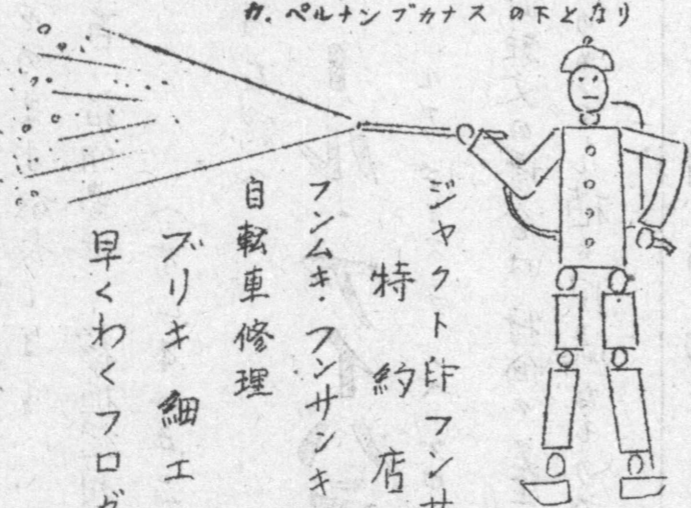 カ.ペルナンブカナス の下となり
ジャクト印フンサ
特約店
フンムキ・フンサンキ
自転車修理
ブリキ 細工
早くわくフロガ